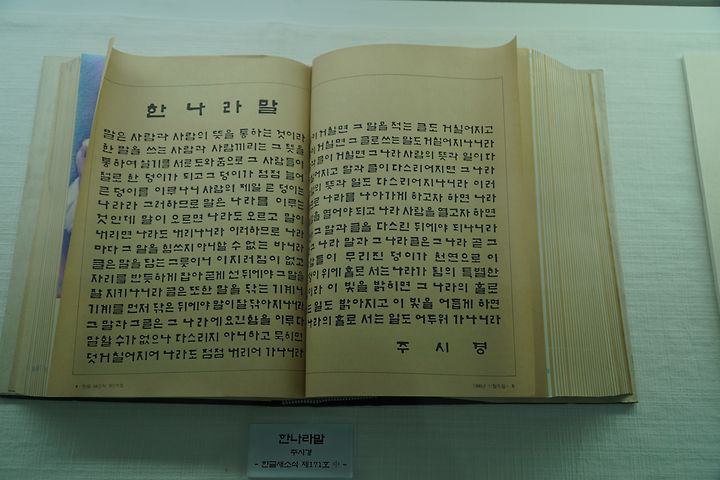 한 나 라 말
말은 사람과 사람의 뜻을 통하는 것이라
한 말을 쓰는 사람과 사람끼리는 그 뜻을
통하여 살기를 서로 도와줌으로 그 사람들이
절로 한 덩이가 되고 그 덩이가 점점 늘어
큰 덩이를 이루나니 사람의 제일 큰 덩이는
나라라 그러하므로 말은 나라를 이루는
것인데 말이 오르면 나라도 오르고 말이
내리면 나라도 내리나니라 이러하므로 나라
마다 그 말을 힘쓰지 아니할 수 없는 바니라
글은 말을 담는 그릇이니 이지러짐이 없고
자리를 반듯하게 잡아 굳게 선 뒤에야 그 말을
잘 지키나니라 글은 또한 말을 닦는 기계니
기계를 먼저 닦은 뒤에야 말이 잘 닦아지나니라
그 말과 그 글은 그 나라에 요긴함을 이루다
말할 수가 없으나 다스리지 아니하고 묵히면
덧거칠어지어 나라도 점점 내리어 가나니라
거칠면 그 말을 적는 글도 거칠어지고
거칠면 그 글로 쓰는 말도 거칠어지나니라
글이 거칠면 그 나라 사람의 뜻과 일이 다
거칠어지고 말과 글이 다스리어지면 그 나라
뜻과 일도 다스리어지나니라 이러
나라를 나아가게 하고자 하면 나라
열어야 되고 나라 사람을 열고자 하면
그 말과 글을 다스린 뒤에야 되나니라
그 나라 말과 그 나라 글은 그 나라 곧 그
사람들이 무리진 덩이가 천연으로 이
땅덩이 위에 홀로 서는 나라가 됨의 특별한
빛이라 이 빛을 밝히면 그 나라의 홀로
서는 일도 밝아지고 이 빛을 어둡게 하면
나라의 홀로 서는 일도 어두워 가나니라
주 시 경
한나라말
주시경
- 한글새소식 제171호 中 -